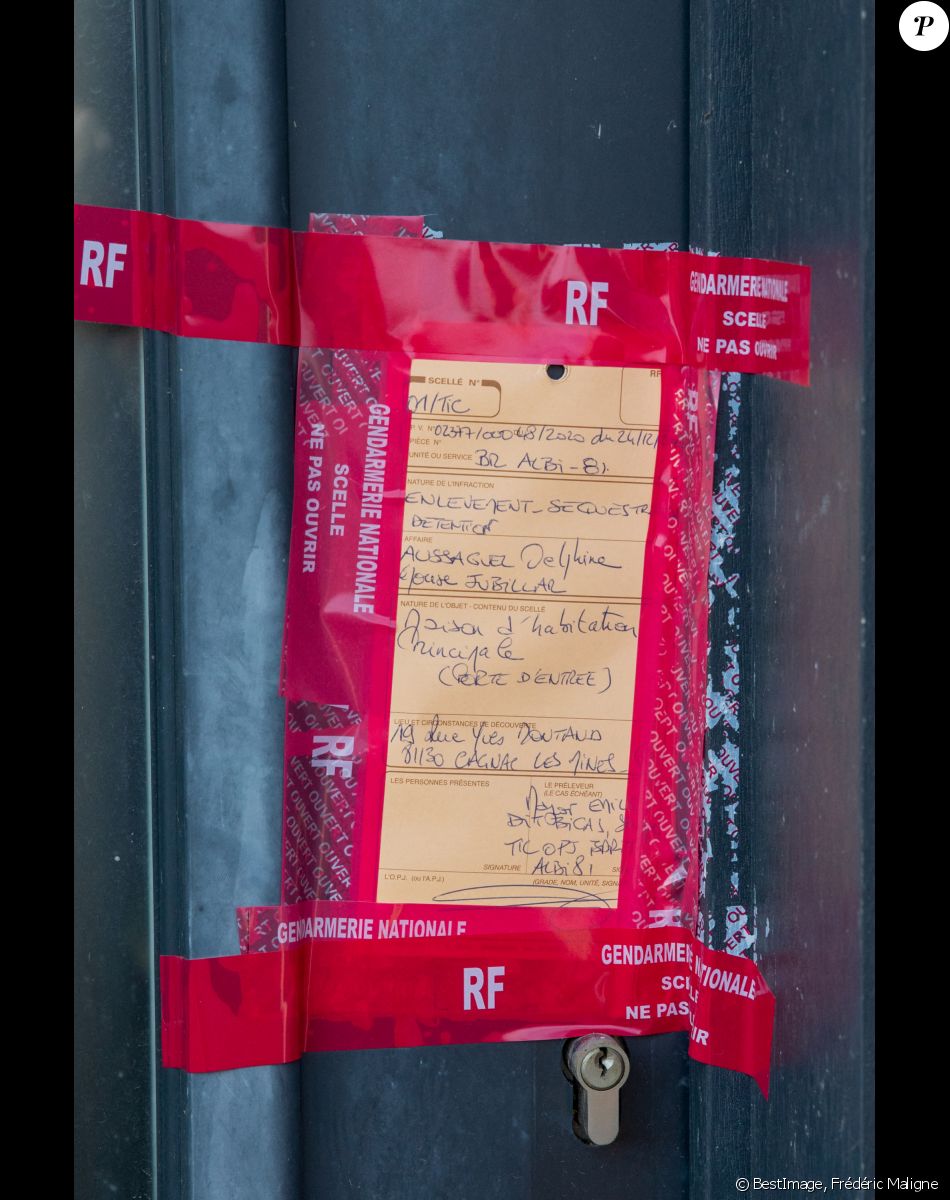 P
RF
RF
GENDARMERIE NATIONALE
SCELLE
NE PAS OUVRIR
GENDARMERIE NATIONALE
SCELLE
NE PAS OUVRIR
RF
SCELLÉ N°
01/TIC
RF
P.V. N° 02377/00048/2020 du 24/12/
PIÈCE N°
UNITÉ OU SERVICE BR ALBi - 81
NATURE DE L'INFRACTION
ENLEVEMENT - SEQUESTR
DETENTION
AFFAIRE
AUSSAGUEL Delphine
épouse JUBILLAR
NATURE DE L'OBJET - CONTENU DU SCELLÉ
Maison d'habitation
Principale
(PORTE D'ENTREE)
LIEU ET CIRCONSTANCES DE DÉCOUVERTE
19 Rue Yves MONTAND
81130 CAGNAC LES MINES
LES PERSONNES PRÉSENTES
LE PRÉLEVEUR
(LE CAS ÉCHÉANT)
TIC OPJ
ALBi 81
SIGNATURE
L'O.P.J. (ou l'A.P.J.)
(GRADE, NOM, UNITÉ, SIGNA
RF
GENDARMERIE NATIONALE
RF
GENDARMERIE NATIONALE
SCELLE
NE PAS OUVRIR
© BestImage, Frédéric Maligne